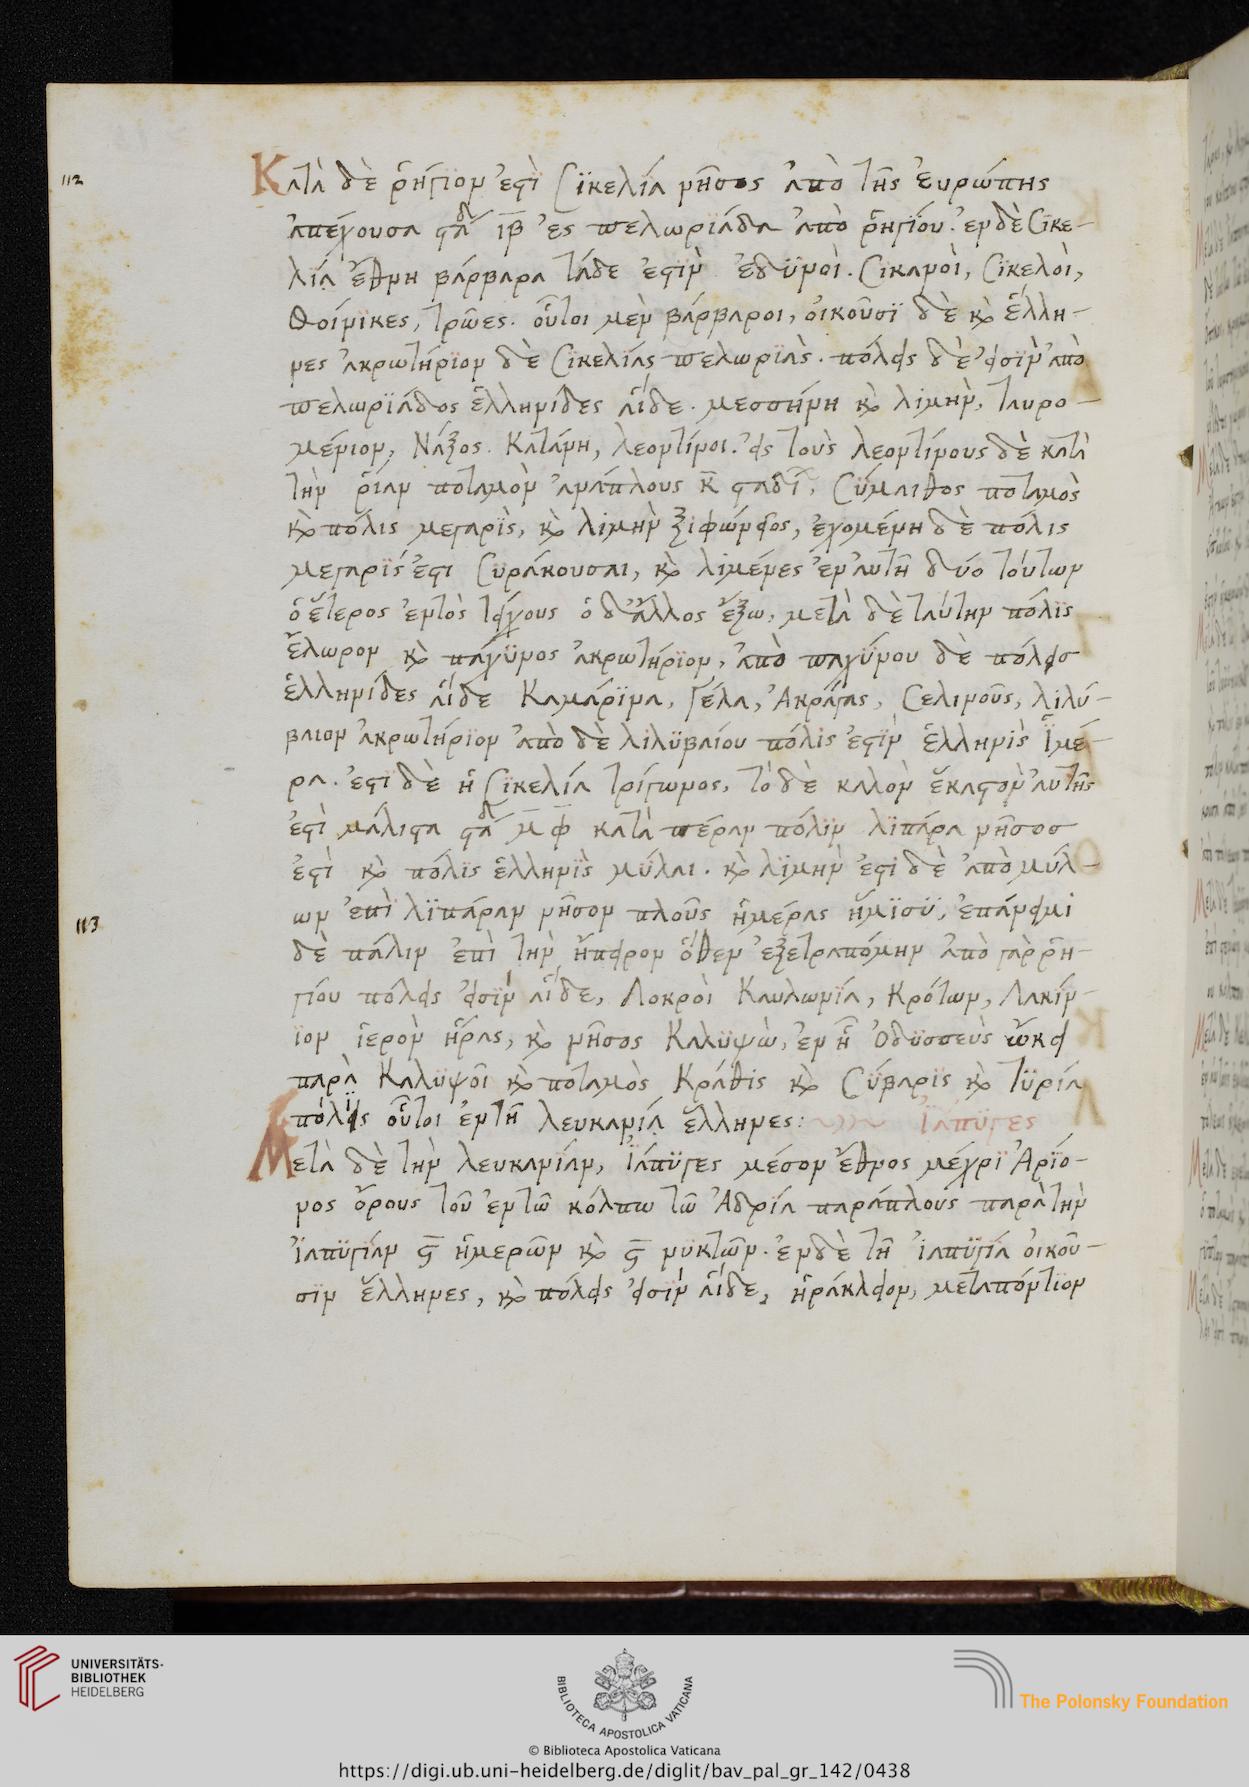 112
Κατὰ δὲ ῥήγϊον ἐστὶ Σϊκελία νῆσος ἀπὸ τῆς ἐυρώπης
ἀπέχουσα στάδ ιβ ἐς πελωρϊάδα ἀπὸ ῥηγίου. ἐν δὲ Σϊκε-
λίᾳ ἔθνη βάρβαρα τάδε ἐστϊν ἐδϋμοὶ. Σϊκανοὶ, Σϊκελοὶ,
Φοίνϊκες, τρῶες. οὗτοι μεν βάρβαροι, ὀικοῦσϊ δὲ κὶ ἕλλη-
νες ἀκρωτήρϊον δὲ Σϊκελίας πελωρϊὰς. πόλεις δὲ εἰσϊν ἀπὸ
πελωρϊάδος ἑλληνίδες αἵδε. μεσσήνη κὶ λιμὴν, ταυρο-
μένιον, Νάξος. Κατάνη, λεοντίνοι. εἰς τοὺς λεοντίνους δὲ κατὰ
τὴν ῥίαν ποταμὸν ἀνάπλους κ σταδι, Σύμαιθος ποταμὸς
κὶ πόλις μεγαρὶς, κὶ λιμὴν ξιφώνειος, ἐχομένη δὲ πόλις
μεγαρίς ἐστι Σϋράκουσαι, κὶ λιμένες ἐν ἀυτῆ δύο τούτων
ὁ ἕτερος ἐντὸς τείχους ὁ δ' ἄλλος ἔξω, μετὰ δὲ ταύτην πόλϊς
ἕλωρον κὶ πάχϋνος ἀκρωτήρϊον, ἀπὸ παχύνου δὲ πόλεισ
ἑλληνίδες αἵδε Καμάρϊνα, γέλα, Ἀκράγας, Σελινοῦς, λιλύ-
βαιον ἀκρωτήρϊον ἀπὸ δὲ λιλϋβαίου πόλις ἐστϊν ἑλληνὶς ἱμέ-
ρα. ἐστι δὲ ἡ Σϊκελία τρίγωνος, τὸ δὲ κῶλον ἕκαστον ἀυτῆς
ἐστὶ μάλιστα στάδ μ φ κατὰ πέραν πόλϊν λϊπάρα νῆσοσ
ἐστὶ κὶ πόλϊς ἑλληνὶς μύλαι. κὶ λϊμὴν ἐστι δὲ ἀπὸ μύλ-
ων ἐπὶ λϊπάραν νῆσον πλοῦς ἡμέρας ἥμϊσϋ, ἐπάνειμι
113
δὲ πάλιν ἐπὶ τὴν ἤπειρον ὅθεν ἐξετραπόμην ἀπὸ γὰρ ῥη-
γίου πόλεις εἰσϊν αἵδε, Λοκροὶ Καυλωνία, Κρότων, Λακίν-
ϊον ἱερὸν ἥρας, κὶ νῆσος Καλϋψὼ, ἐν ᾗ Ὀδϋσσεὺς ὤκει
παρὰ Καλϋψοῖ κὶ ποταμὸς Κρᾶθις κὶ Σύβαρϊς κὶ τϋρία
πόλεις οὗτοι ἐν τῆ λευκανίᾳ ἕλληνες: Ἰάπϋγες
Μετὰ δὲ τὴν λευκανίαν, Ἰάπϋγες μέσον ἔθνος μέχρϊ Ἀρίο-
νος ὄρους τοῦ ἐν τῶ κόλπω τῶ Ἀδρία παράπλους παρὰ τὴν
ἰαπϋγίαν ϛ ἡμερῶν κὶ ϛ νϋκτῶν. ἐν δὲ τῆ ἰαπϋγία ὀικοῦ-
σϊν ἕλληνες, κὶ πόλεις εἰσϊν αἵδε, ἡράκλειον, μεταπόντϊον
UNIVERSITÄTS-
BIBLIOTHEK
HEIDELBERG
BIBLIOTECA APOSTOLICA VATICANA
The Polonsky Foundation
© Biblioteca Apostolica Vaticana
https://digi.ub.uni-heidelberg.de/diglit/bav_pal_gr_142/0438